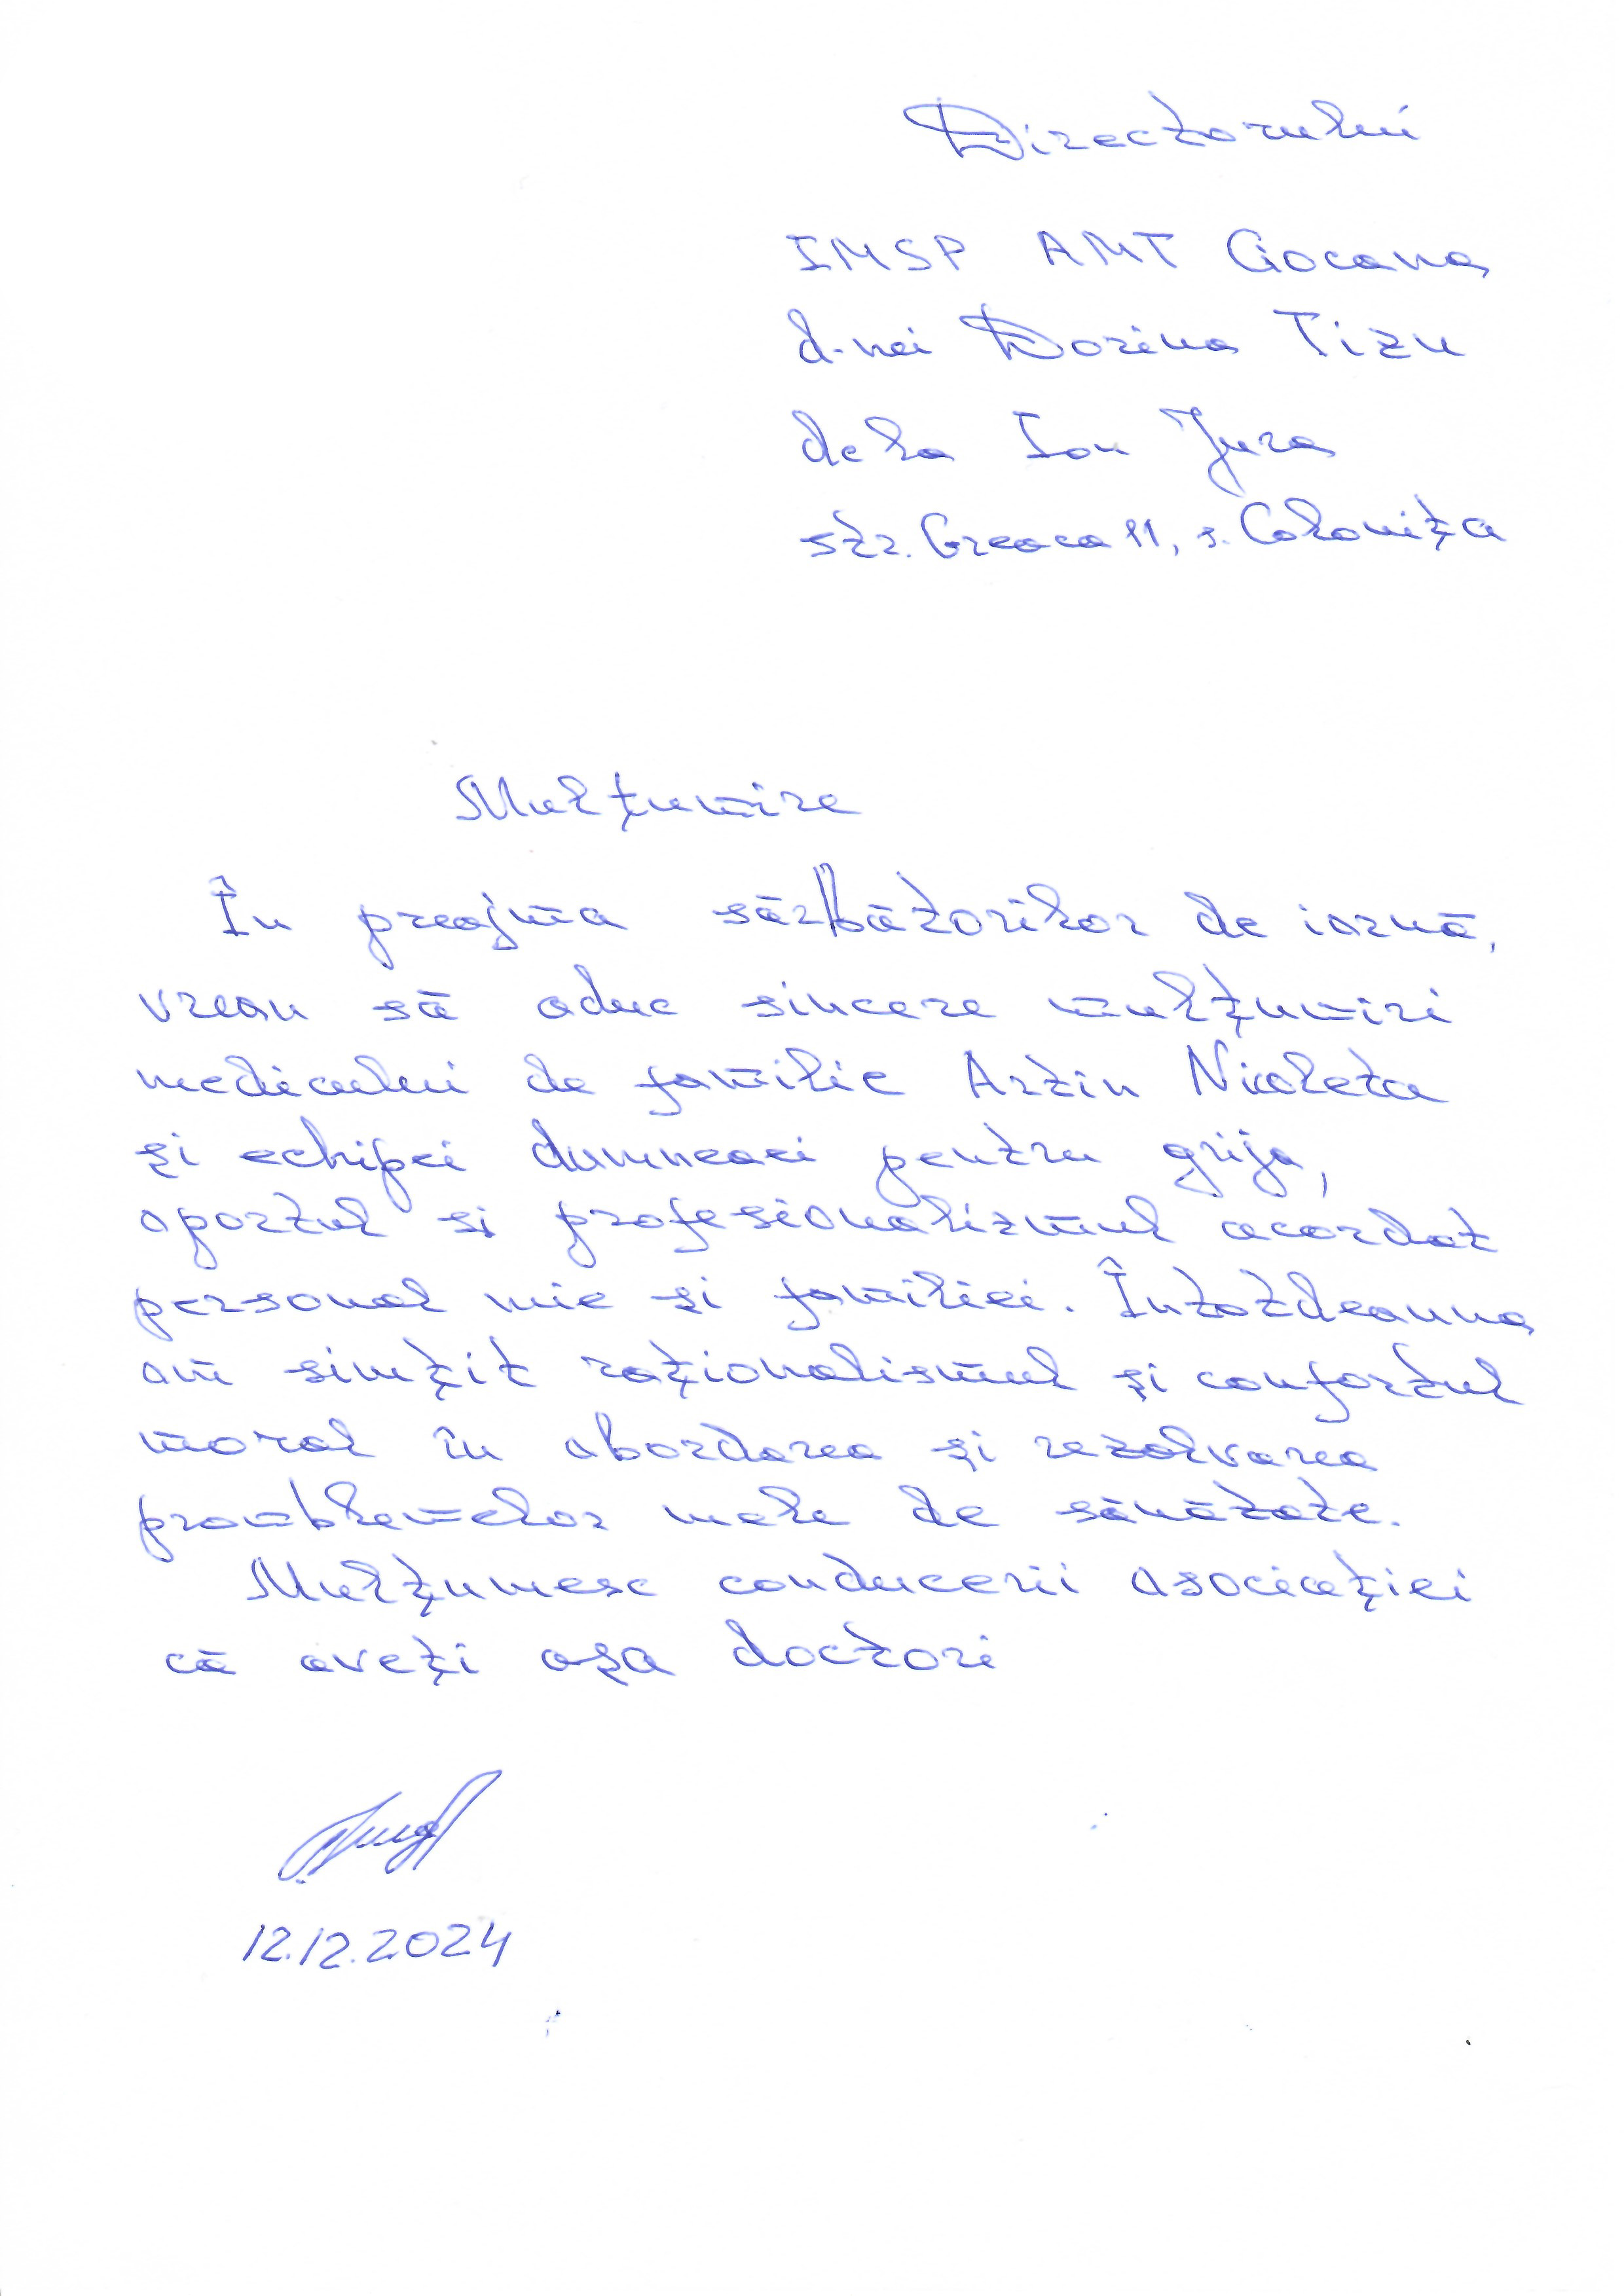 Directorului
IMSP AMT Ciocana
d-nei Dorina Tizu
de la Ion Jura
str. Greaca 11, s. Colonița
Mulțumire
În preajma sărbătorilor de iarnă,
vreau să aduc sincere mulțumiri
medicului de familie Arzin Nicoleta
și echipei dumneaei pentru grija,
aportul si profesionalizmul acordat
personal mie și familiei. Întotdeauna
am simțit raționalismul și confortul
moral în abordarea și rezolvarea
promblemelor mele de sănătate.
Mulțumesc conducerii asociației
că aveți așa doctori
12.12.2024